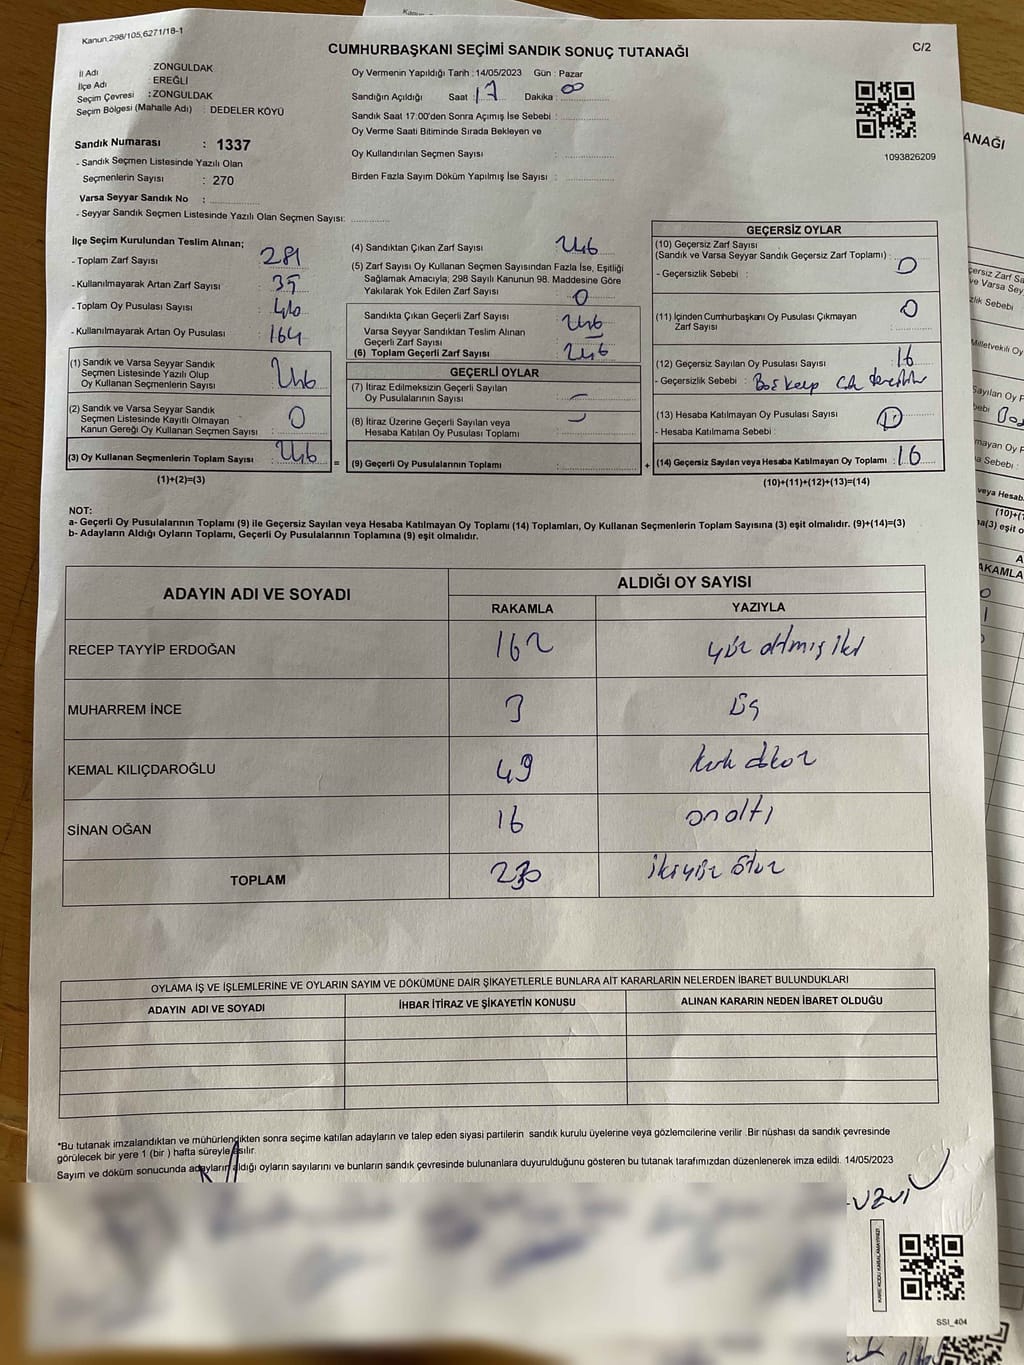 Kanun,298/105,6271/18-1
CUMHURBAŞKANI SEÇİMİ SANDIK SONUÇ TUTANAĞI
C/2
İl Adı : ZONGULDAK
İlçe Adı : EREĞLİ
Seçim Çevresi : ZONGULDAK
Seçim Bölgesi (Mahalle Adı) DEDELER KÖYÜ
Sandık Numarası : 1337
- Sandık Seçmen Listesinde Yazılı Olan
Seçmenlerin Sayısı : 270
Varsa Seyyar Sandık No :
- Seyyar Sandık Seçmen Listesinde Yazılı Olan Seçmen Sayısı:
Oy Vermenin Yapıldığı Tarih : 14/05/2023 Gün : Pazar
Sandığın Açıldığı Saat : 17 Dakika : 00
Sandık Saat 17:00'den Sonra Açımış İse Sebebi :
Oy Verme Saati Bitiminde Sırada Bekleyen ve
Oy Kullandırılan Seçmen Sayısı :
Birden Fazla Sayım Döküm Yapılmış İse Sayısı :
1093826209
İlçe Seçim Kurulundan Teslim Alınan;
- Toplam Zarf Sayısı : 281
- Kullanılmayarak Artan Zarf Sayısı : 35
- Toplam Oy Pusulası Sayısı :
- Kullanılmayarak Artan Oy Pusulası : 164
(1) Sandık ve Varsa Seyyar Sandık
Seçmen Listesinde Yazılı Olup
Oy Kullanan Seçmenlerin Sayısı : 246
(2) Sandık ve Varsa Seyyar Sandık
Seçmen Listesinde Kayıtlı Olmayan
Kanun Gereği Oy Kullanan Seçmen Sayısı : 0
(3) Oy Kullanan Seçmenlerin Toplam Sayısı : 246
(1)+(2)=(3)
=
(4) Sandıktan Çıkan Zarf Sayısı : 246
(5) Zarf Sayısı Oy Kullanan Seçmen Sayısından Fazla İse, Eşitliği
Sağlamak Amacıyla; 298 Sayılı Kanunun 98. Maddesine Göre
Yakılarak Yok Edilen Zarf Sayısı : 0
Sandıkta Çıkan Geçerli Zarf Sayısı : 246
Varsa Seyyar Sandıktan Teslim Alınan
Geçerli Zarf Sayısı :
(6) Toplam Geçerli Zarf Sayısı : 246
GEÇERLİ OYLAR
(7) İtiraz Edilmeksizin Geçerli Sayılan
Oy Pusulalarının Sayısı :
(8) İtiraz Üzerine Geçerli Sayılan veya
Hesaba Katılan Oy Pusulası Toplamı :
(9) Geçerli Oy Pusulalarının Toplamı :
+
GEÇERSİZ OYLAR
(10) Geçersiz Zarf Sayısı
(Sandık ve Varsa Seyyar Sandık Geçersiz Zarf Toplamı) : 0
- Geçersizlik Sebebi :
(11) İçinden Cumhurbaşkanı Oy Pusulası Çıkmayan
Zarf Sayısı : 0
(12) Geçersiz Sayılan Oy Pusulası Sayısı : 16
- Geçersizlik Sebebi :
(13) Hesaba Katılmayan Oy Pusulası Sayısı : 0
- Hesaba Katılmama Sebebi :
(14) Geçersiz Sayılan veya Hesaba Katılmayan Oy Toplamı : 16
(10)+(11)+(12)+(13)=(14)
NOT:
a- Geçerli Oy Pusulalarının Toplamı (9) ile Geçersiz Sayılan veya Hesaba Katılmayan Oy Toplamı (14) Toplamları, Oy Kullanan Seçmenlerin Toplam Sayısına (3) eşit olmalıdır. (9)+(14)=(3)
b- Adayların Aldığı Oyların Toplamı, Geçerli Oy Pusulalarının Toplamına (9) eşit olmalıdır.
ADAYIN ADI VE SOYADI ALDIĞI OY SAYISI
RAKAMLA YAZIYLA
RECEP TAYYİP ERDOĞAN 162 yüz altmış iki
MUHARREM İNCE 3 üç
KEMAL KILIÇDAROĞLU 49 kırk dokuz
SİNAN OĞAN 16 on altı
TOPLAM 230 ikiyüz otuz
OYLAMA İŞ VE İŞLEMLERİNE VE OYLARIN SAYIM VE DÖKÜMÜNE DAİR ŞİKAYETLERLE BUNLARA AİT KARARLARIN NELERDEN İBARET BULUNDUKLARI
ADAYIN ADI VE SOYADI İHBAR İTİRAZ VE ŞİKAYETİN KONUSU ALINAN KARARIN NEDEN İBARET OLDUĞU
*Bu tutanak imzalandıktan ve mühürlendikten sonra seçime katılan adayların ve talep eden siyasi partilerin sandık kurulu üyelerine veya gözlemcilerine verilir .Bir nüshası da sandık çevresinde
görülecek bir yere 1 (bir ) hafta süreyle asılır.
Sayım ve döküm sonucunda adayların aldığı oyların sayılarını ve bunların sandık çevresinde bulunanlara duyurulduğunu gösteren bu tutanak tarafımızdan düzenlenerek imza edildi. 14/05/2023
KARE KODU KARALAMAYINIZ!
SSI_404